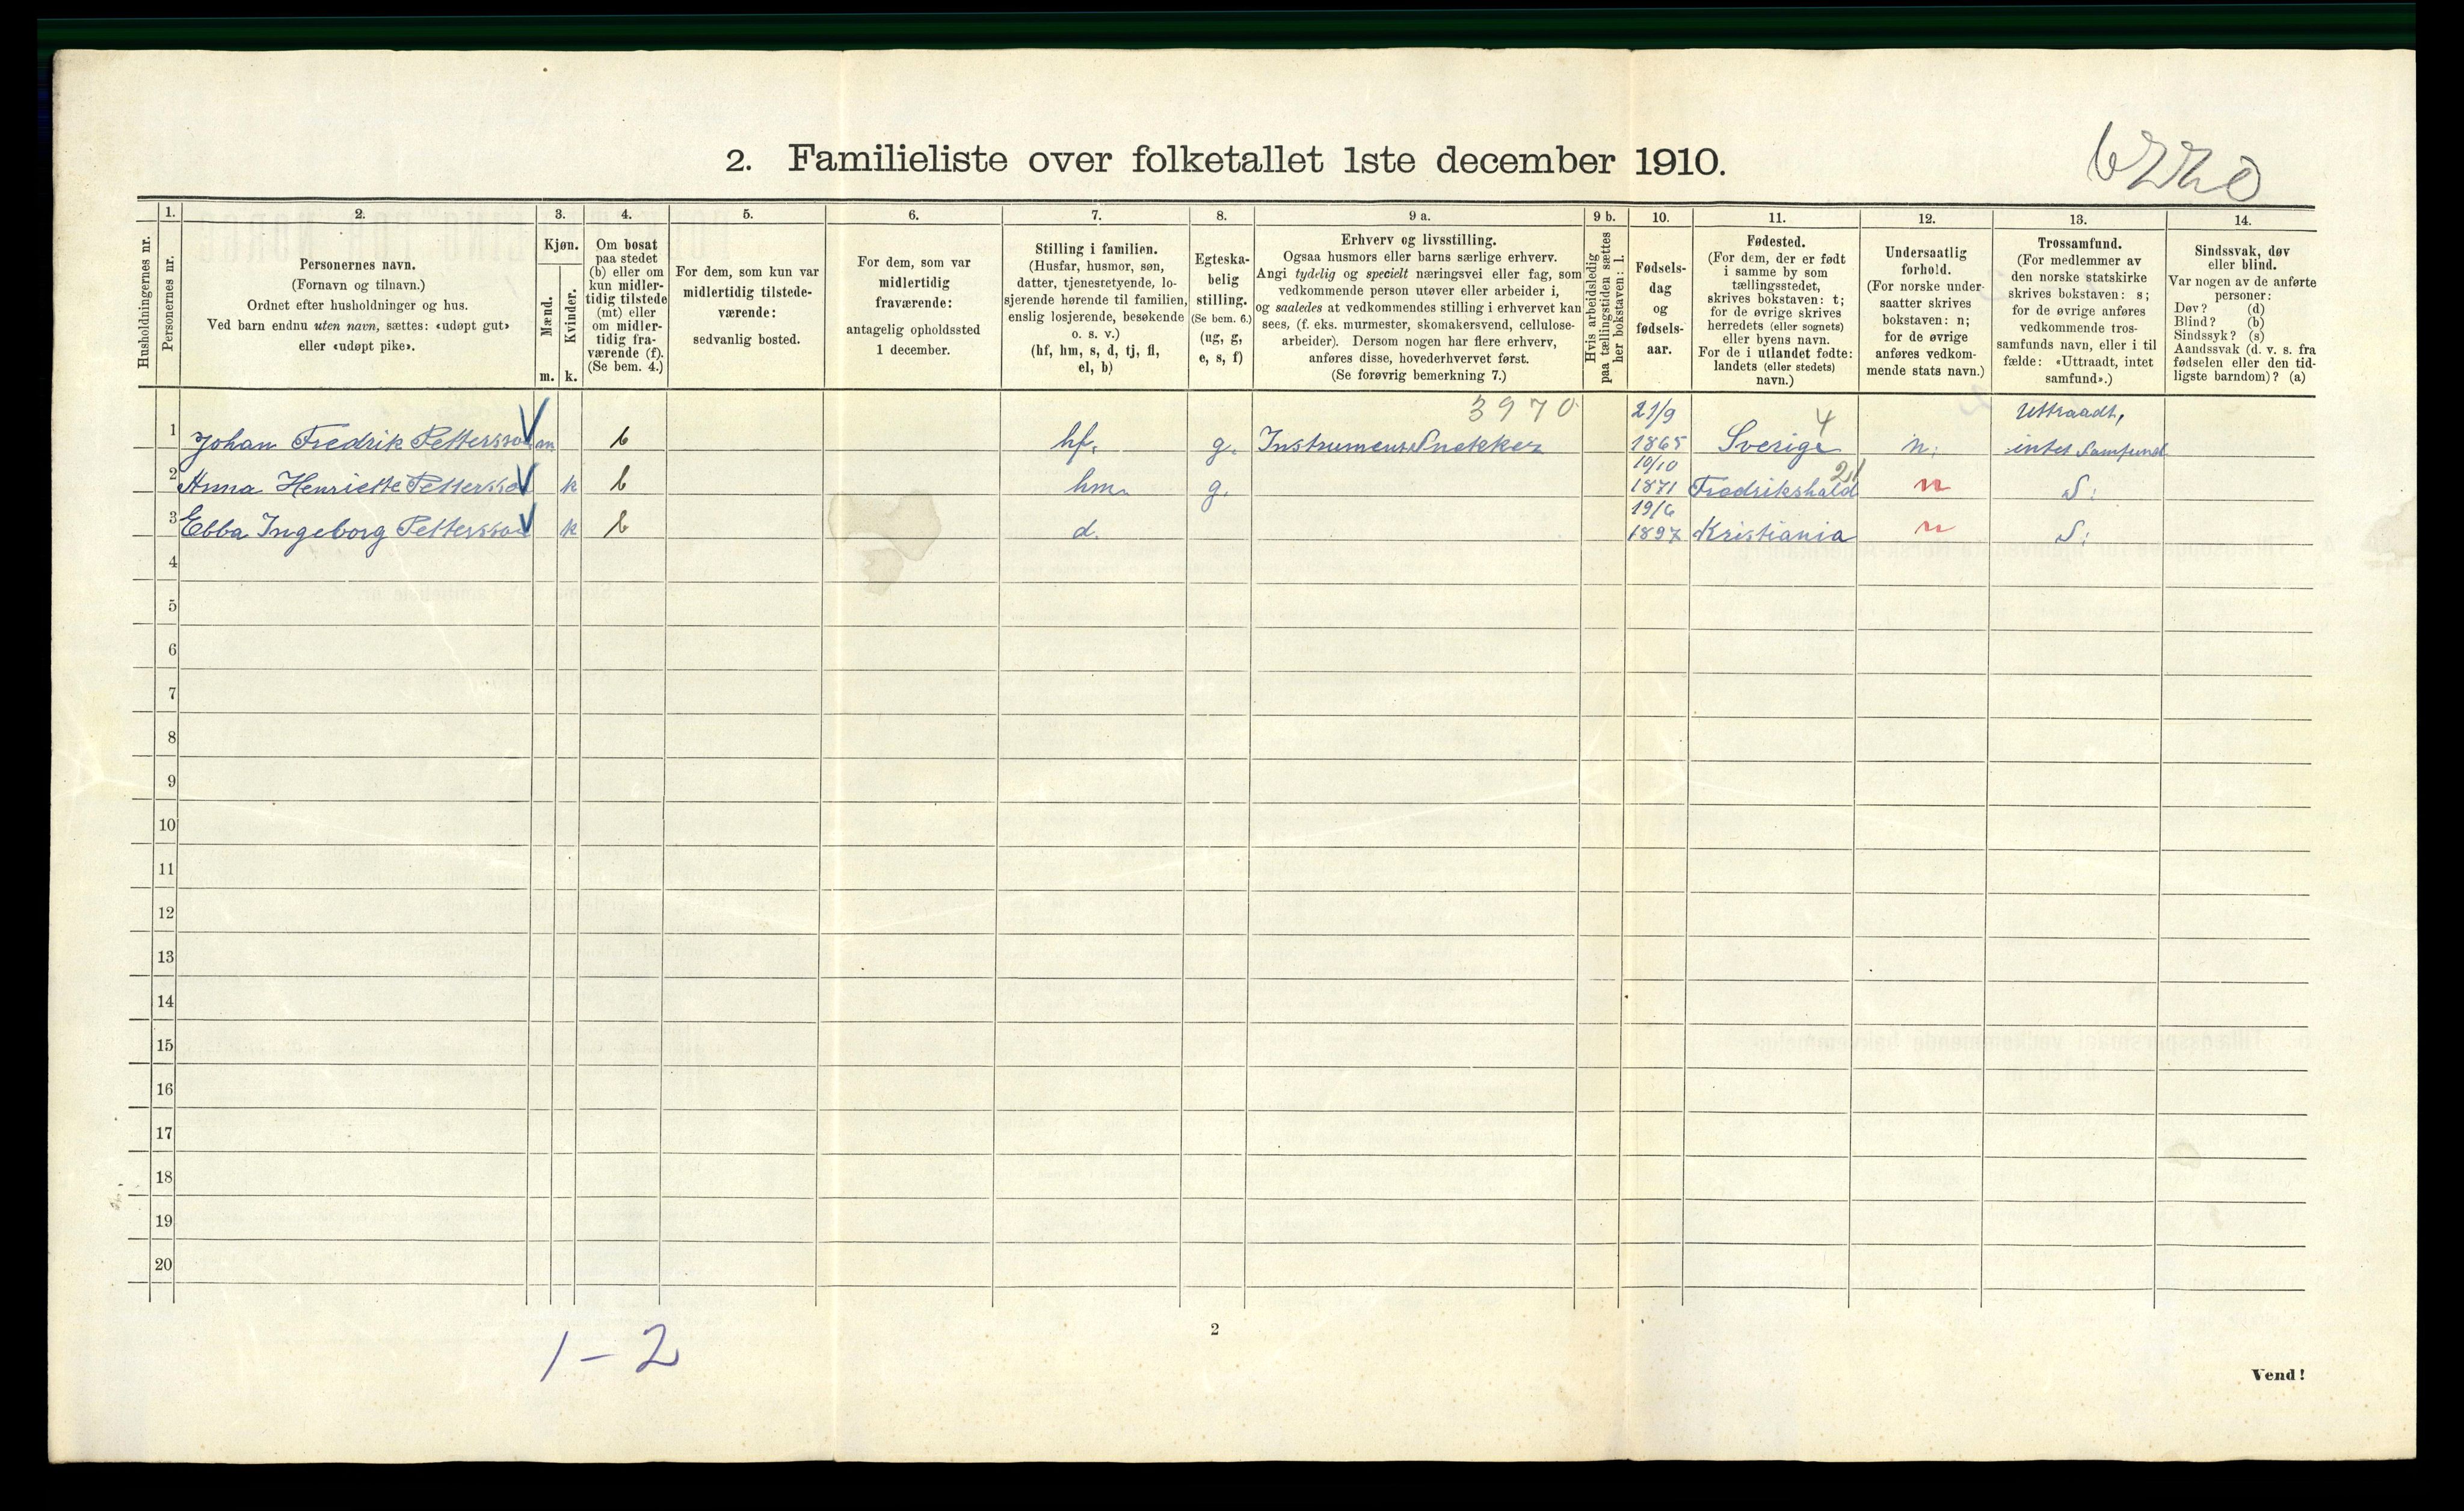 6220
2. Familieliste over folketallet 1ste december 1910.
1. 2. 3. 4. 5. 6. 7. 8. 9 a. 9 b. 10. 11. 12. 13. 14.
Husholdningernes nr.
Personernes nr.
Personernes navn.
(Fornavn og tilnavn.)
Ordnet efter husholdninger og hus.
Ved barn endnu uten navn, sættes: «udøpt gut»
eller «udøpt pike».
Kjøn.
Mænd.
m.
Kvinder.
k.
Om bosat
paa stedet
(b) eller om
kun midler-
tidig tilstede
(mt) eller
om midler-
tidig fra-
værende (f).
(Se bem. 4.)
For dem, som kun var
midlertidig tilstede-
værende:
sedvanlig bosted.
For dem, som var
midlertidig
fraværende:
antagelig opholdssted
1 december.
Stilling i familien.
(Husfar, husmor, søn,
datter, tjenestetyende, lo-
sjerende hørende til familien,
enslig losjerende, besøkende
o. s. v.)
(hf, hm, s, d, tj, fl,
el, b)
Egteska-
belig
stilling.
(Se bem. 6.)
(ug, g,
e, s, f)
Erhverv og livsstilling.
Ogsaa husmors eller barns særlige erhverv.
Angi tydelig og specielt næringsvei eller fag, som
vedkommende person utøver eller arbeider i,
og saaledes at vedkommendes stilling i erhvervet kan
sees, (f. eks. murmester, skomakersvend, cellulose-
arbeider). Dersom nogen har flere erhverv,
anføres disse, hovederhvervet først.
(Se forøvrig bemerkning 7.)
Hvis arbeidsledig
paa tællingstiden sættes
her bokstaven: l.
Fødsels-
dag
og
fødsels-
aar.
Fødested.
(For dem, der er født
i samme by som
tællingsstedet,
skrives bokstaven: t;
for de øvrige skrives
herredets (eller sognets)
eller byens navn.
For de i utlandet fødte:
landets (eller stedets)
navn.)
Undersaatlig
forhold.
(For norske under-
saatter skrives
bokstaven: n;
for de øvrige
anføres vedkom-
mende stats navn.)
Trossamfund.
(For medlemmer av
den norske statskirke
skrives bokstaven: s;
for de øvrige anføres
vedkommende tros-
samfunds navn, eller i til
fælde: «Uttraadt, intet
samfund».)
Sindssvak, døv
eller blind.
Var nogen av de anførte
personer:
Døv? (d)
Blind? (b)
Sindssyk? (s)
Aandssvak (d. v. s. fra
fødselen eller den tid-
ligste barndom)? (a)
3970 21/9 4 Uttraadt,
1 Johan Fredrik Pettersson m b hf. g. Instrument Snekker 1865 Sverige n. intet Samfund
10/10 21
2 Anna Henriette Pettersson k b hm. g. 1871 Fredrikshald n S.
19/6
3 Ebba Ingeborg Pettersson k b d. 1897 Kristiania n S.
4
5
6
7
8
9
10
11
12
13
14
15
16
17
18
19
20
1 – 2
2
Vend!